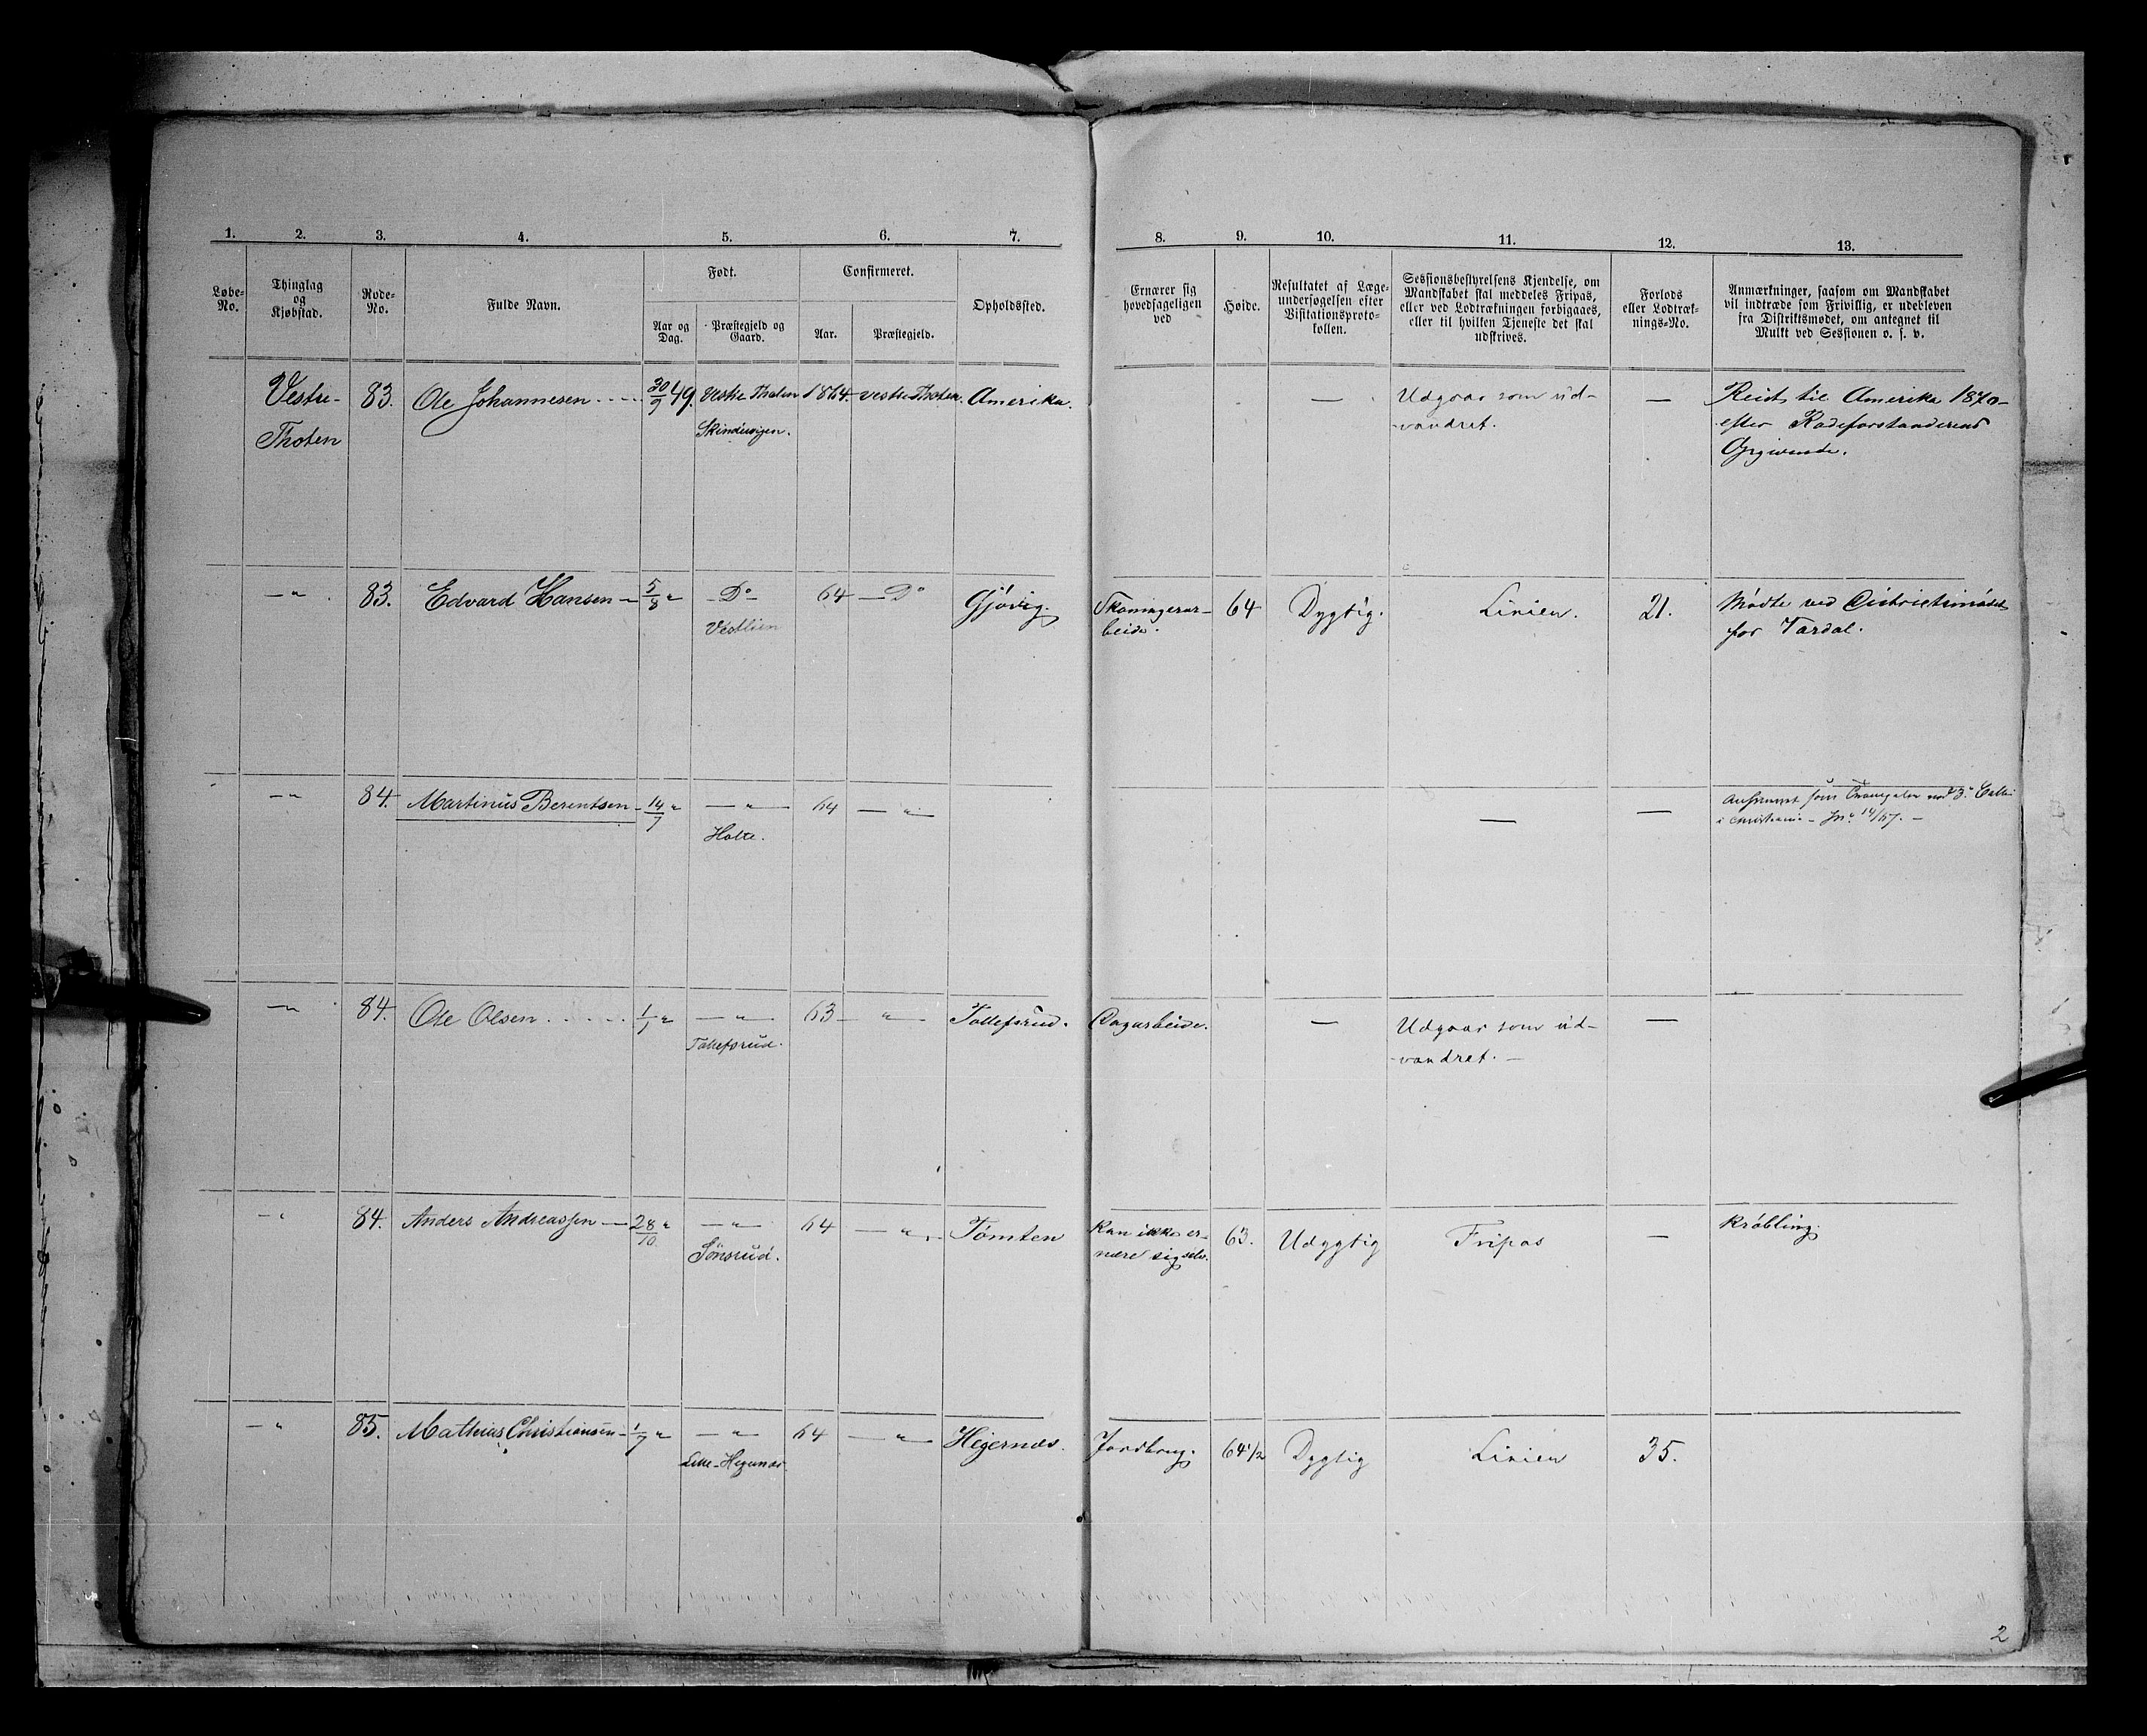 1. 2. 3. 4. 5. 6. 7. 8. 9. 10. 11. 12. 13.
Løbe-
No.
Thinglag
og
Kjøbstad.
Rode-
No.
Fulde Navn.
Født.
Aar og
Dag.
Præstegjeld og
Gaard.
Confirmeret.
Aar.
Præstegjeld.
Opholdssted.
Ernærer sig
hovedsageligen
ved
Høide.
Resultatet af Læge-
undersøgelsen efter
Visitationsproto-
kollen.
Sessionsbestyrelsens Kjendelse, om
Mandskabet skal meddeles Fripas,
eller ved Lodtrækningen forbigaaes,
eller til hvilken Tjeneste det skal
udskrives.
Forlods
eller Lodtræk-
nings-No.
Anmærkninger, saasom om Mandskabet
vil indtræde som Frivillig, er udebleven
fra Distriktsmødet, om antegnet til
Mulkt ved Sessionen o. s. v.
Vestre- 83. Ole Johannesen 30/9 49. Vestre Thoten 1864. Vestre Thoten. Amerika. — Udgaar som ud- — Reist til Amerika 1870
Thoten Skindervigen. vandret. efter Rodeforstanderens
Opgivende.
—"— 83. Edvard Hansen — 5/8 " Do 64 — Do Gjövig. Skomagerar- 64 Dygtig. Linien. 21. Mödte ved Districtsmödet
Vestlien beide. for Vardal.
—"— 84. Martinus Berentsen 14/7 " —"— 64 —"— — —
Holte. i Christiania
—"— 84. Ole Olsen 1/1 " —"— 63 —"— Tollefsrud. Dagarbeide. — Udgaar som ud- —
Tollefsrud. vandret. —
—"— 84. Anders Andreassen — 28/10 " —"— 64 —"— Tömten Kan ikke er- 63. Udygtig Fripas — Kröbling.
Sönsrud. nære sig selv.
—"— 85. Mathias Christiansen 1/7 " —"— 64 —"— Hegernæs. Jordbrug. 64 1/2 Dygtig Linien 35.
Lille-Hegernæs.
2